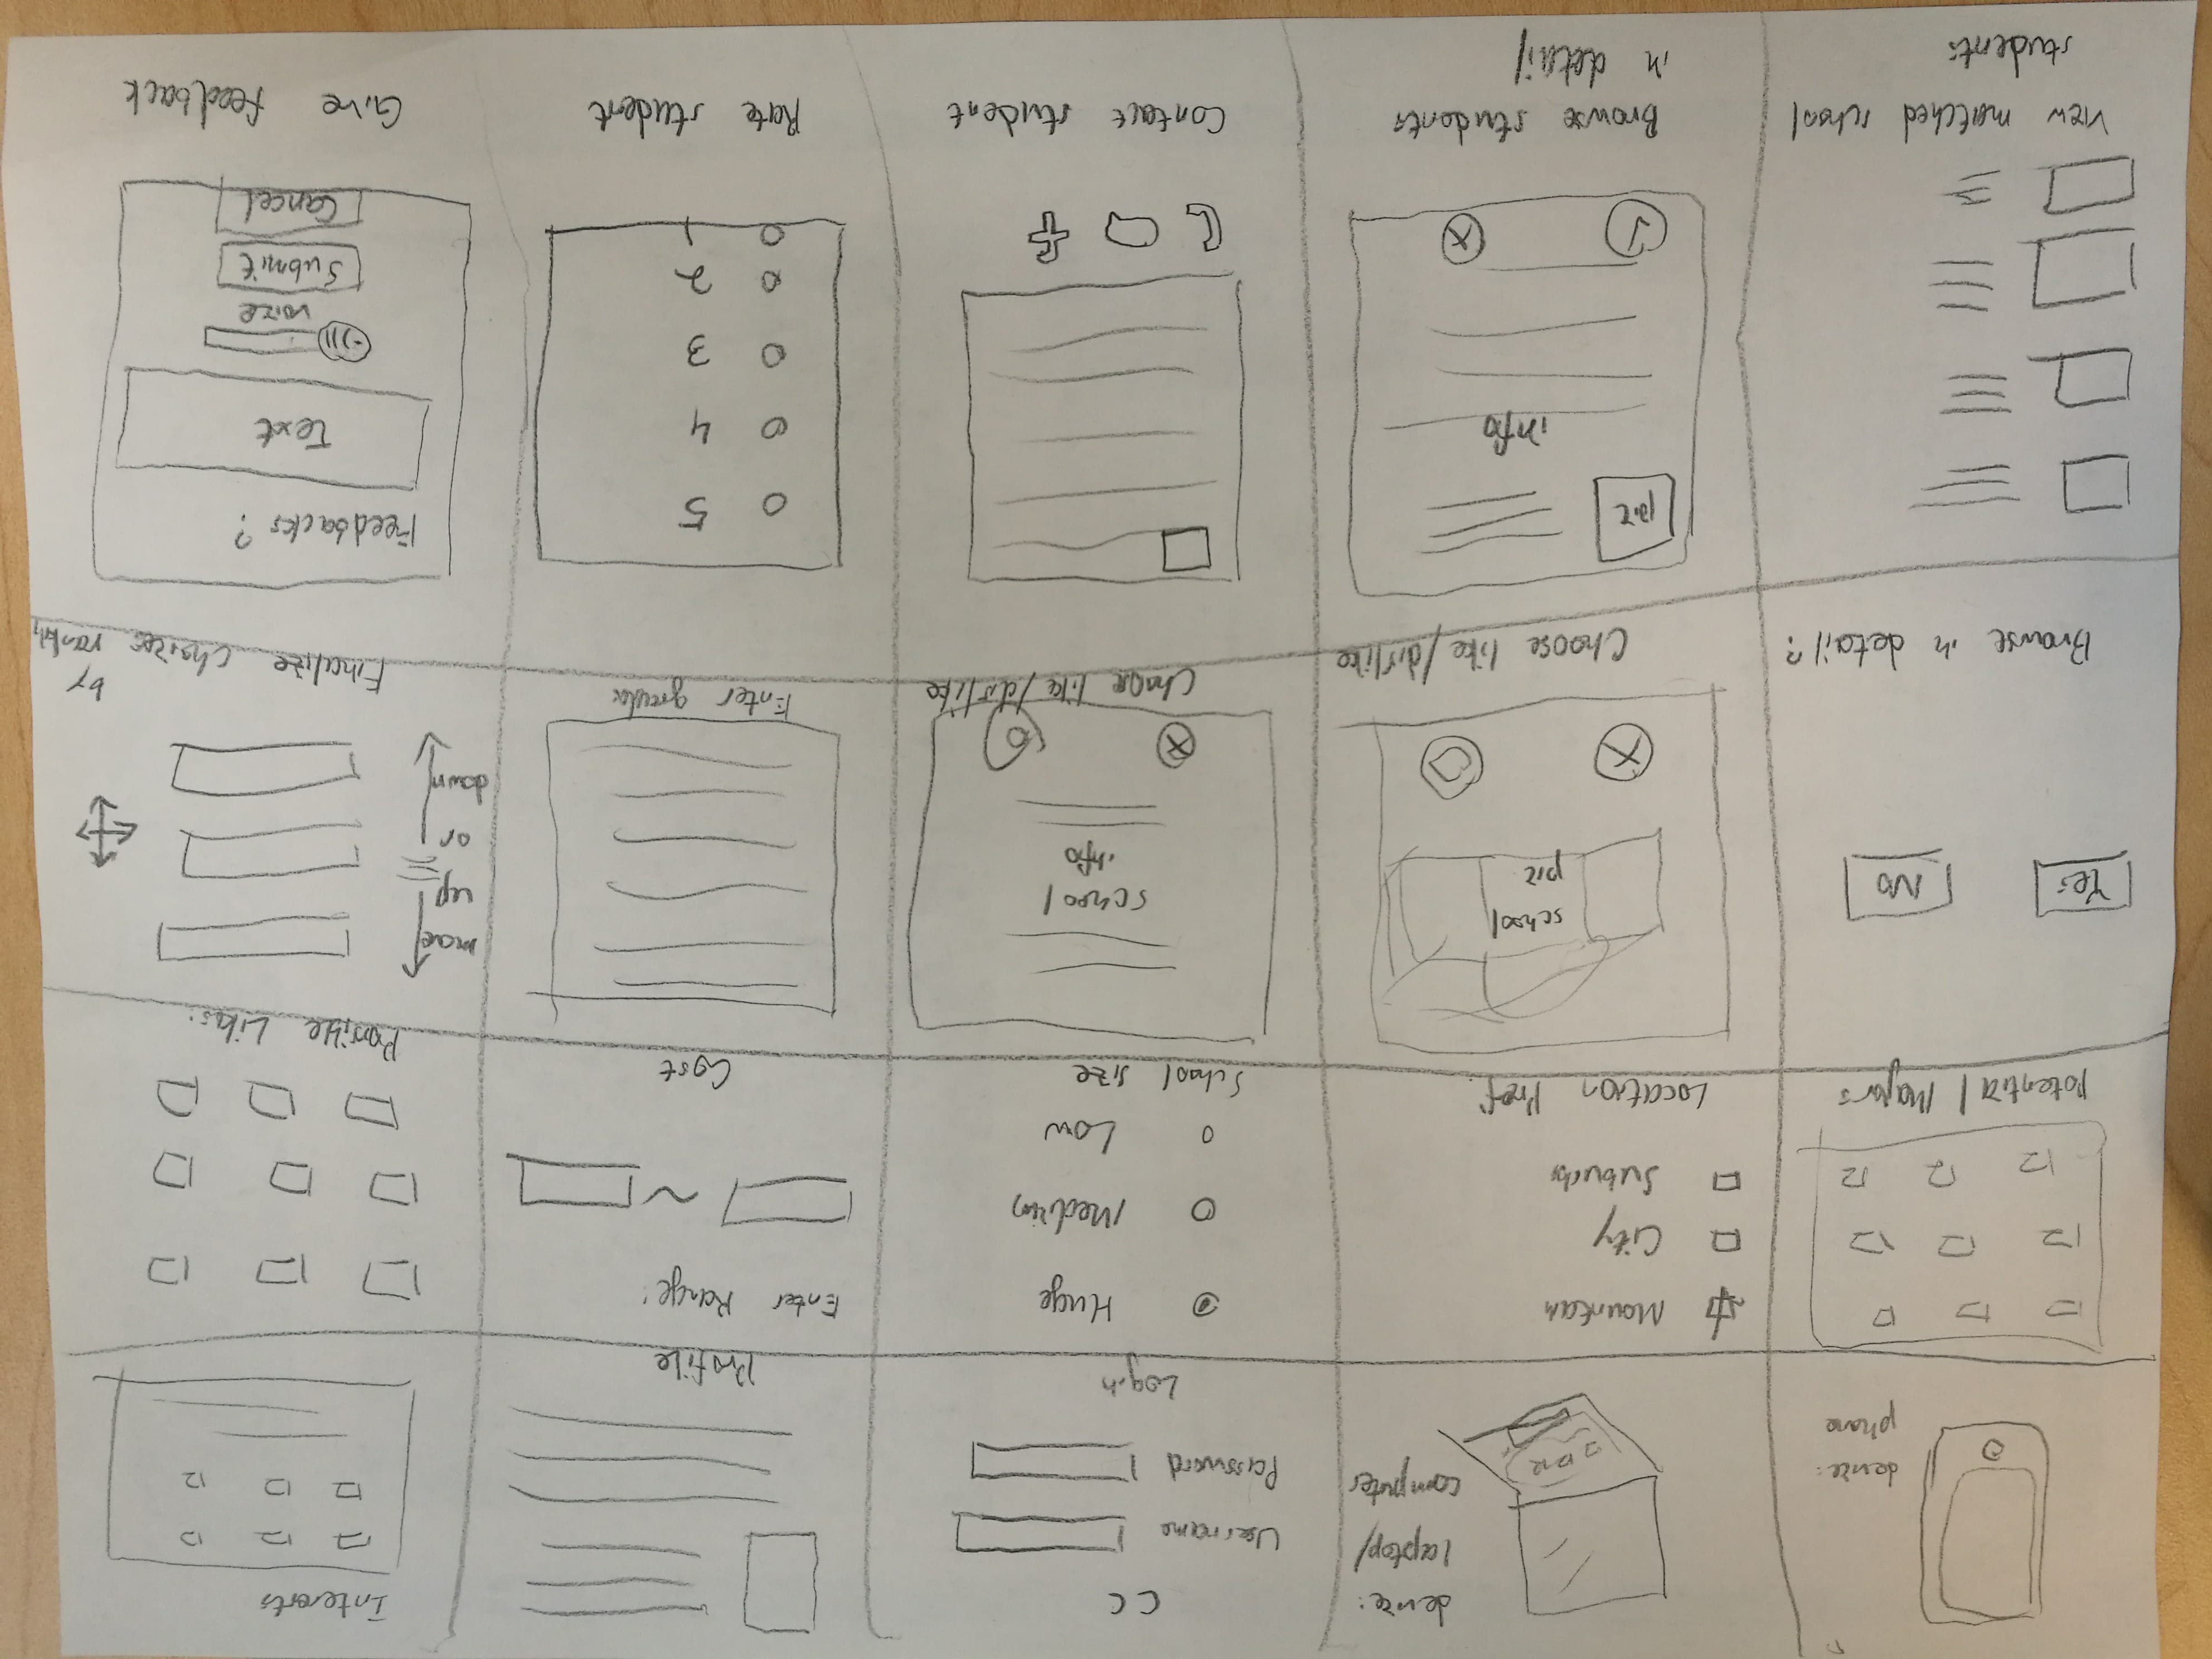 device:
phone
device:
laptop/
computer
CC
Username
Password
Login
Profile
Interests
Potential Majors
Mountain
City
Suburbs
Location Pref.
Huge
Medium
Low
School size
Enter Range:
~
Cost
Possible Likes:
Yes
No
Browse in detail?
school
pic
Choose like/dislike
school
info
Choose like/dislike
Enter grades
move
up
or
down
Finalize choices by
ranking
View matched school
students
pic
info
Browse students
in detail
Contact student
5
4
3
2
1
Rate student
Feedbacks?
Text
voice
Submit
Cancel
Give feedback